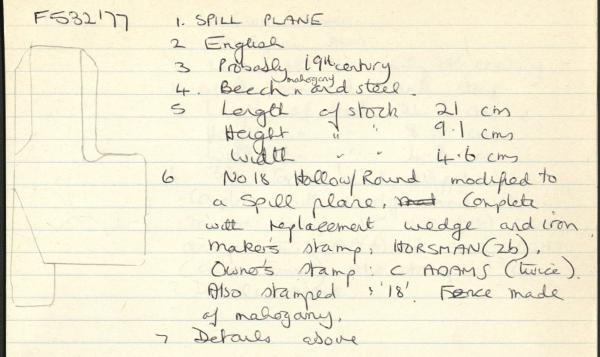 F532'77
1. SPILL PLANE
2 English
3 Probably 19th century
4. Beech mahogany and steel.
5 Length of stock 21 cms
Height " " 9.1 cms
Width " " 4.6 cms
6 No 18 Hollow/Round modified to
a Spill plane, Complete
with replacement wedge and iron.
Maker's stamp: HORSMAN (2b).
Owner's stamp: C ADAMS (twice).
Also stamped : '18'. Fence made
of mahogany.
7 Details above